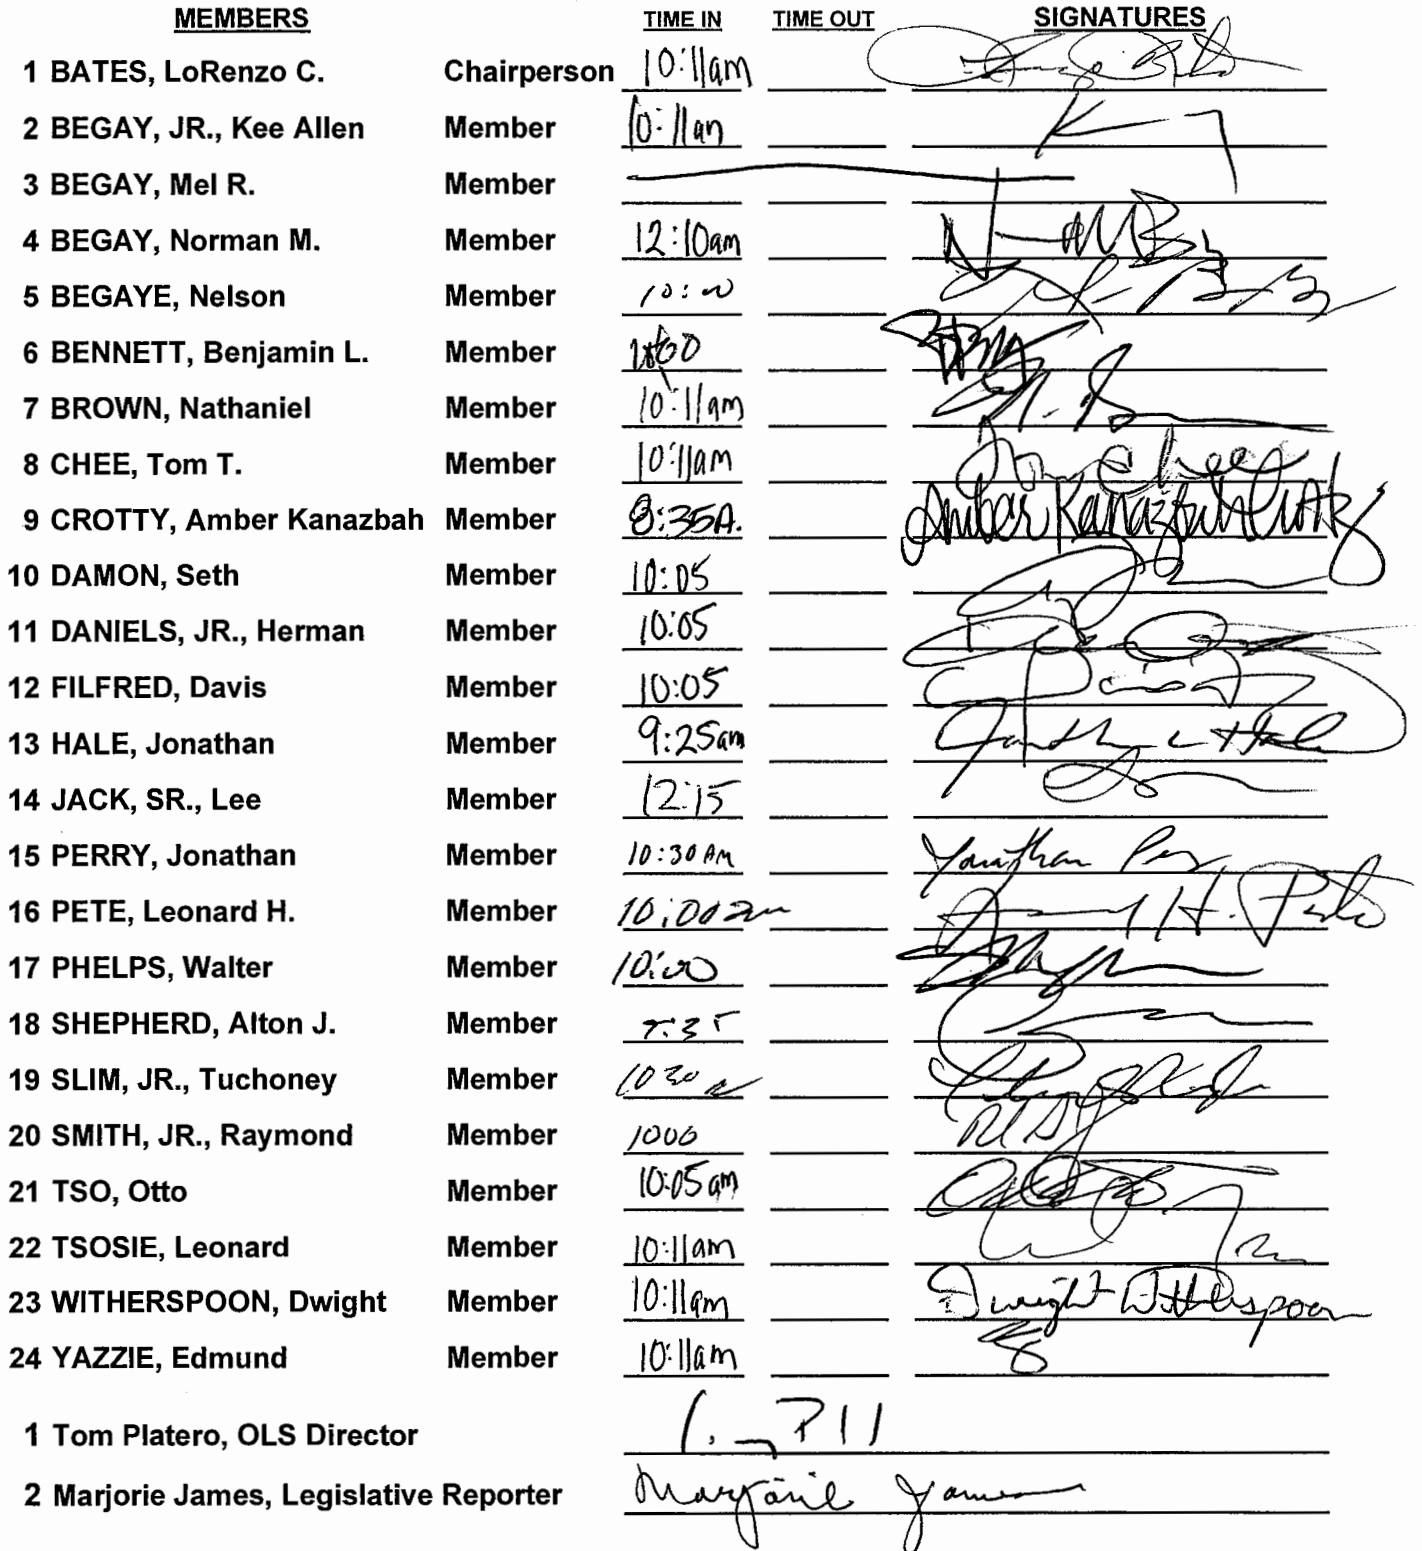 MEMBERS TIME IN TIME OUT SIGNATURES
1 BATES, LoRenzo C. Chairperson 10:11am
2 BEGAY, JR., Kee Allen Member 10:11am
3 BEGAY, Mel R. Member
4 BEGAY, Norman M. Member 12:10am
5 BEGAYE, Nelson Member 10:00
6 BENNETT, Benjamin L. Member
7 BROWN, Nathaniel Member 10:11am
8 CHEE, Tom T. Member 10:11am Tom Chee
9 CROTTY, Amber Kanazbah Member 8:35A. Amber Kanazbah Crotty
10 DAMON, Seth Member 10:05
11 DANIELS, JR., Herman Member 10:05
12 FILFRED, Davis Member 10:05
13 HALE, Jonathan Member 9:25am Jonathan L Hale
14 JACK, SR., Lee Member 12:15
15 PERRY, Jonathan Member 10:30 AM Jonathan Perry
16 PETE, Leonard H. Member 10:00am H. Pete
17 PHELPS, Walter Member 10:00
18 SHEPHERD, Alton J. Member
19 SLIM, JR., Tuchoney Member 1030
20 SMITH, JR., Raymond Member 1000
21 TSO, Otto Member 10:05am
22 TSOSIE, Leonard Member 10:11am
23 WITHERSPOON, Dwight Member 10:11am Dwight Witherspoon
24 YAZZIE, Edmund Member 10:11am
1 Tom Platero, OLS Director
2 Marjorie James, Legislative Reporter Marjorie James